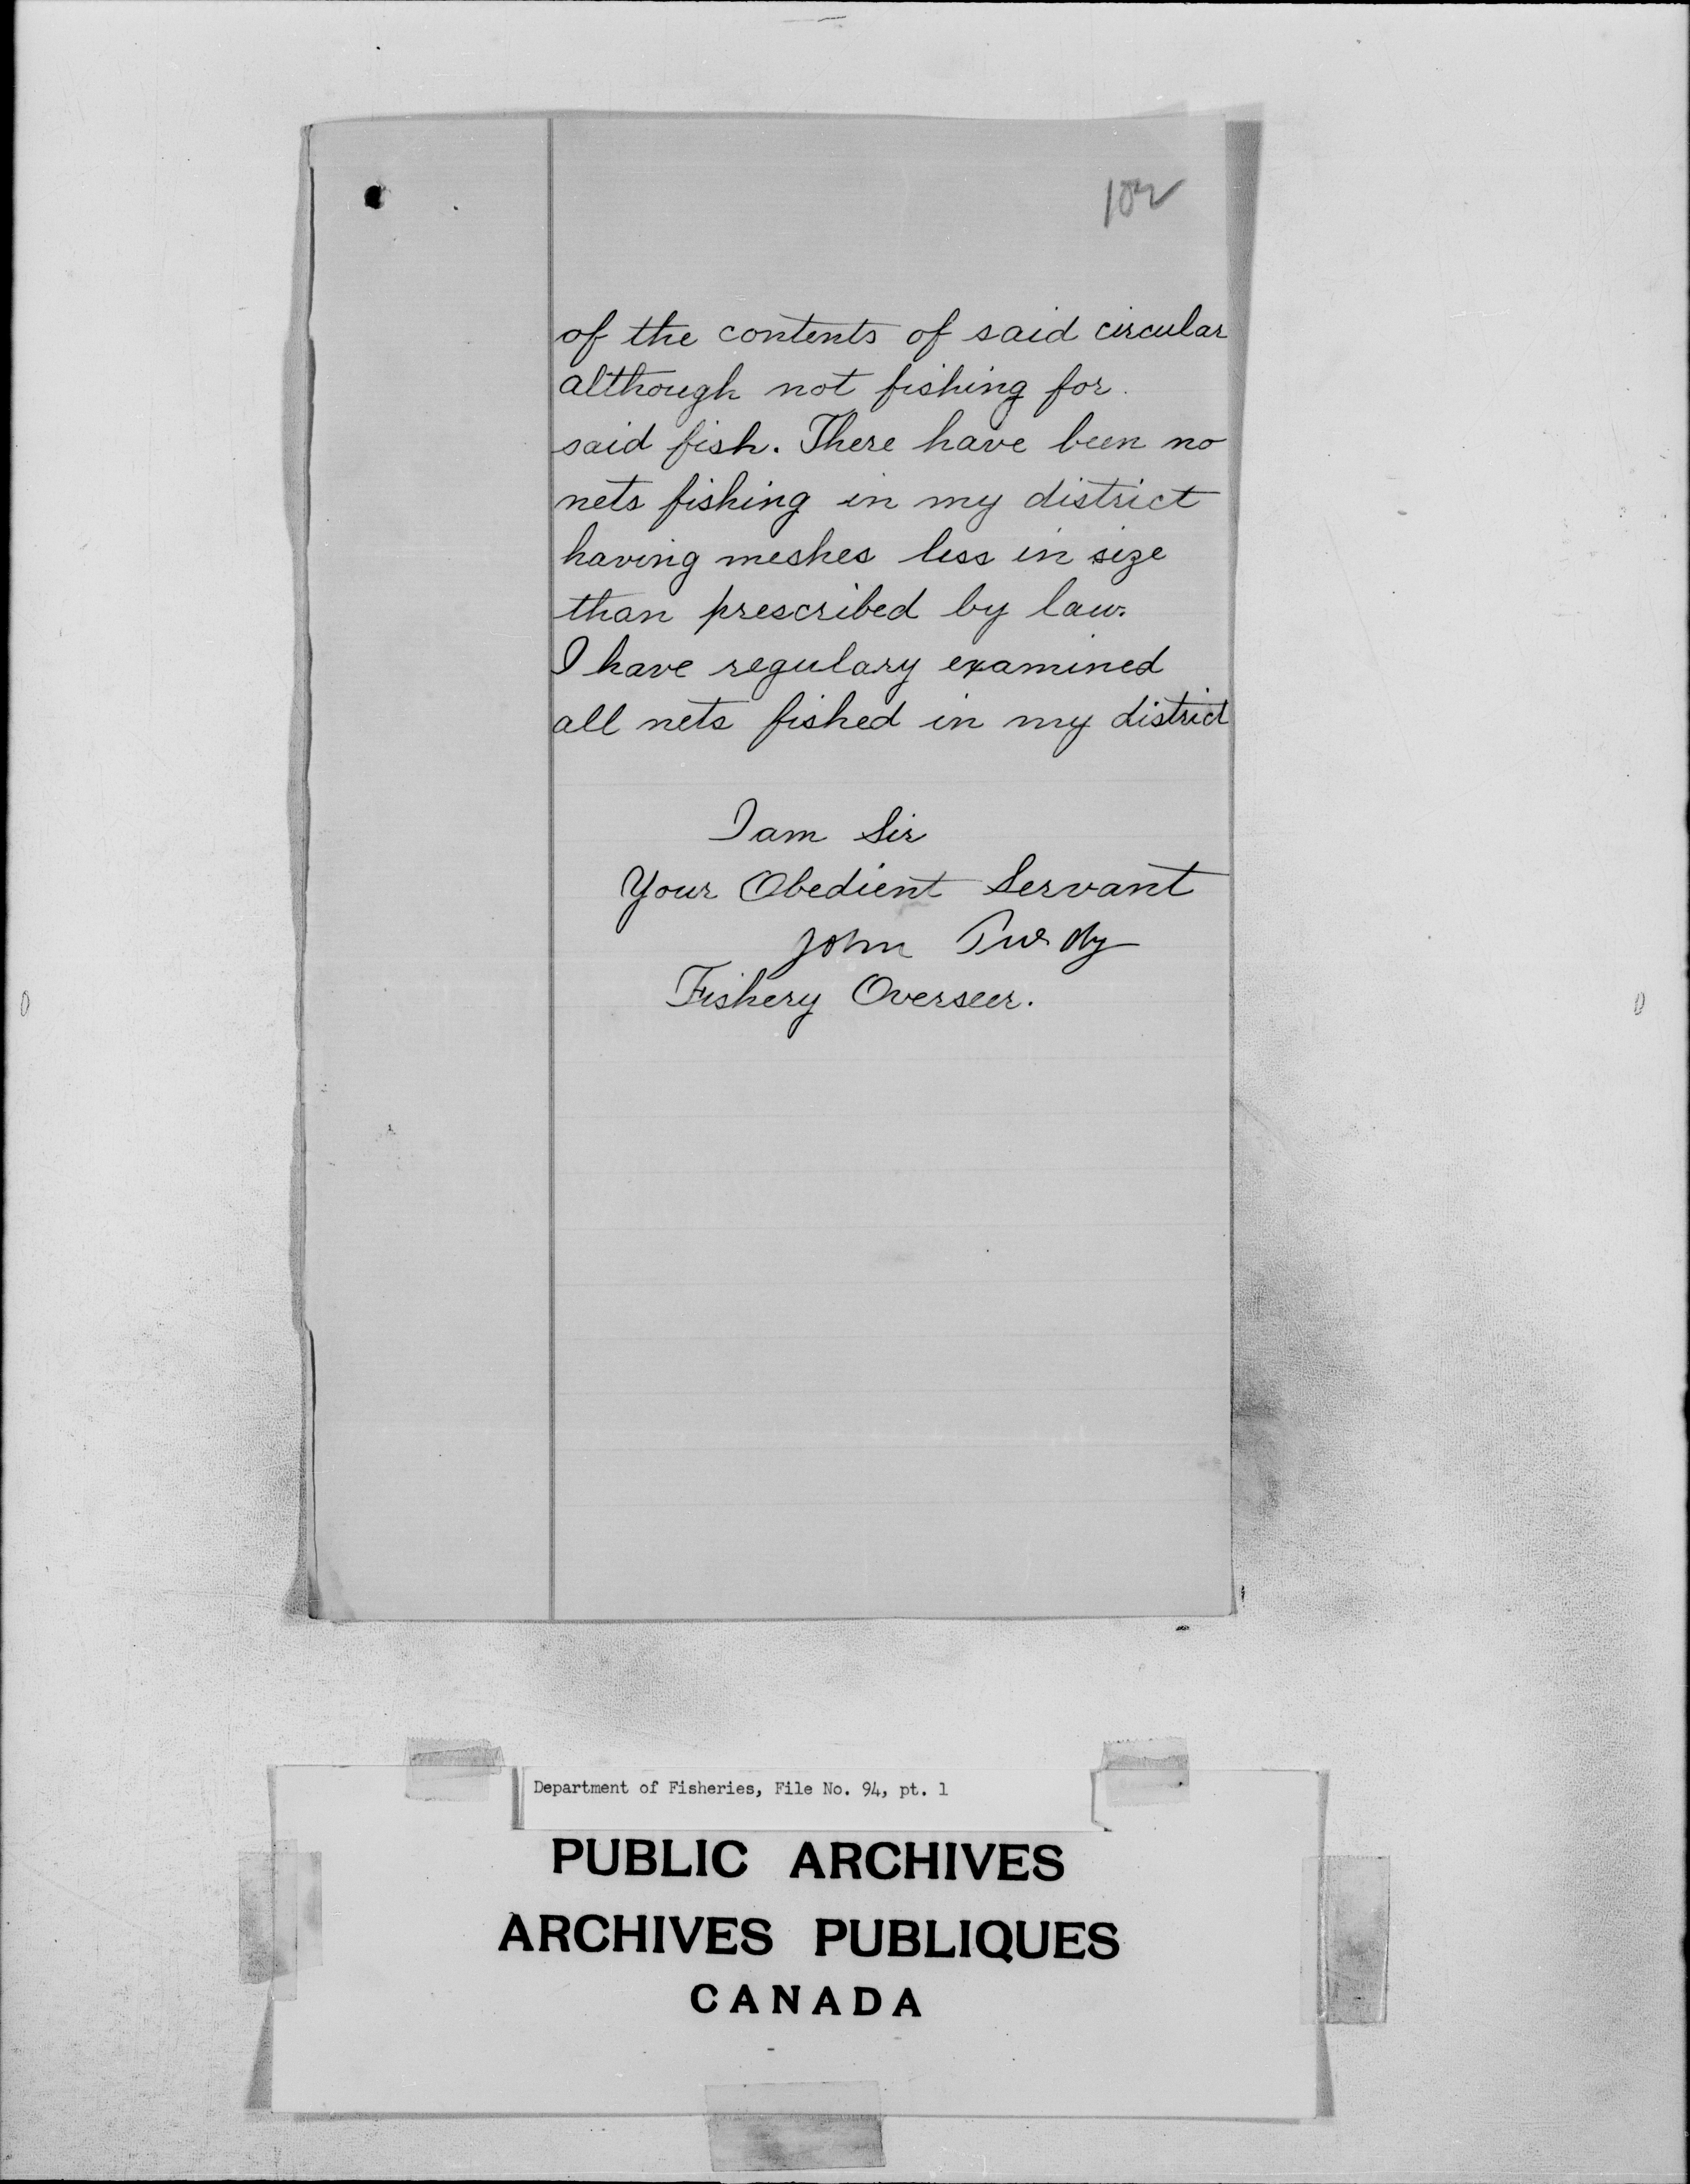 102
of the contents of said circular
although not fishing for
said fish. There have been no
nets fishing in my district
having meshes less in size
than prescribed by law.
I have regulary examined
all nets fished in my district
I am Sir
Your Obedient Servant
John Purdy
Fishery Overseer.
Department of Fisheries, File No. 94, pt. 1
PUBLIC ARCHIVES
ARCHIVES PUBLIQUES
CANADA